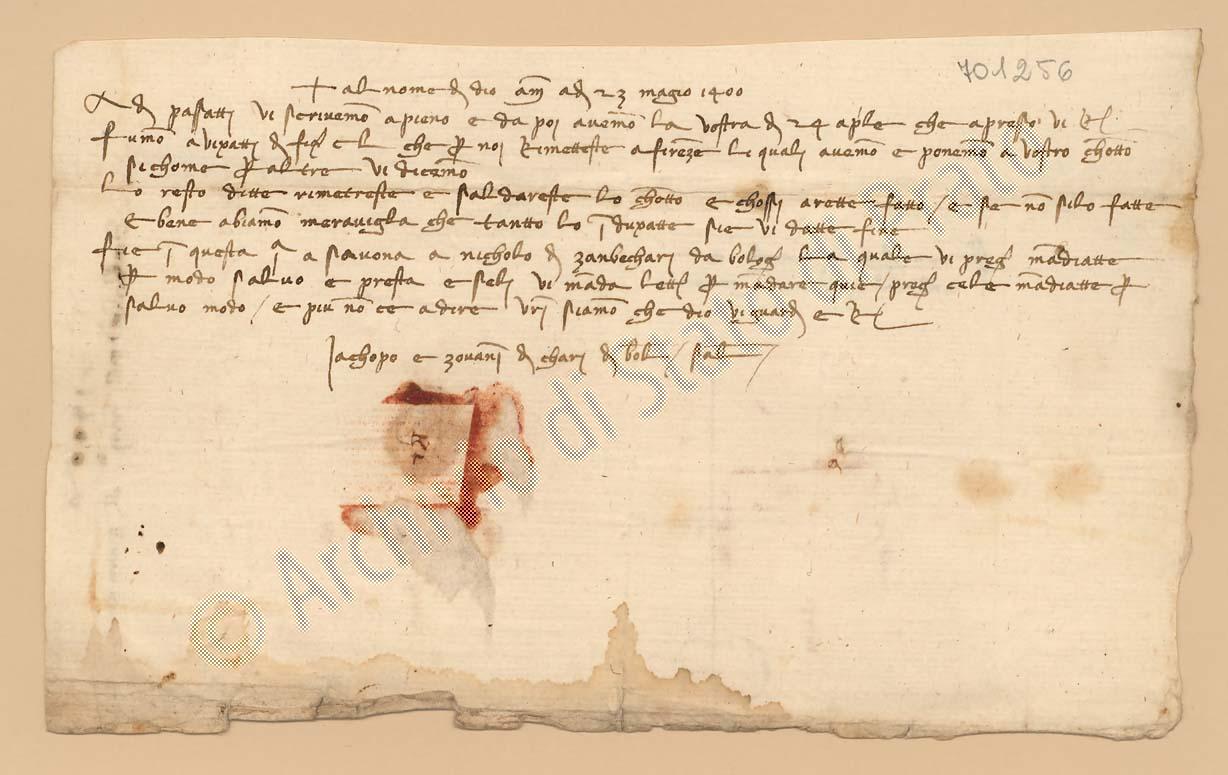 701256
+ al nome d dio am ad 23 magio 1400
A d passatti vi scrivemo apieno e da poi avemo la vostra d 24 aple che apresso vi R
fumo avipatti d che p noi Rimetteste a firenze li quali avemo e ponemo a vostro chotto
sichome p altre vi dicemo
Lo resto ditte rimetreste e saldareste lo chotto e chossi arette fatto / e se no silo fatte
e bene abiamo meravigla che tantto lo dupatte sie vi datte fine
fie questa a savona a nicholo d zanbechari da bolog la quale vi preg madiatte
p modo salvo e presta e seli vi mada lett p madare quie / preg cele madiatte p
salvo modo / e piu no ce a dire vri siamo che dio vi guard e R
Jachopo e zovani d chari d bol / sal
© Archivio di Stato di Prato